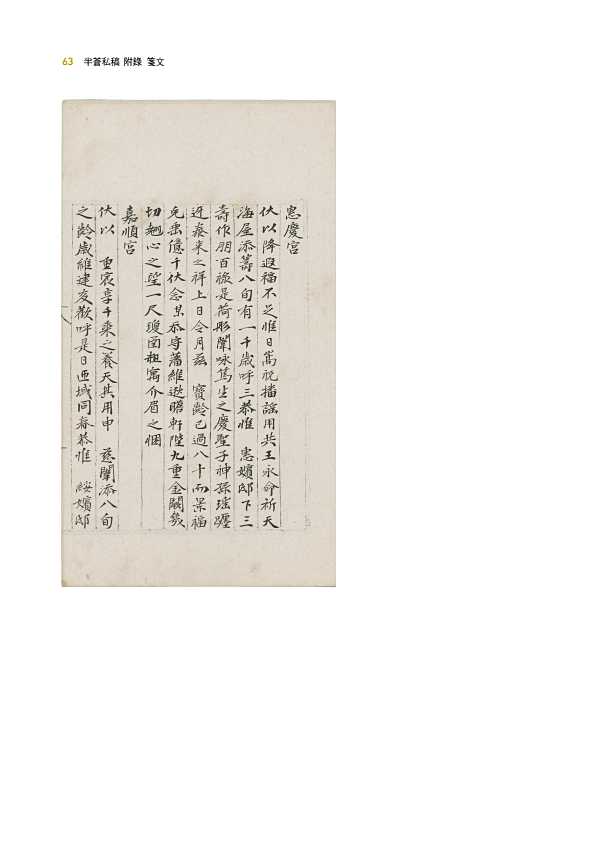 63 半簹私稿 附錄 箋文
惠慶宮
伏以降遐福不足惟日嵩祝播謠用共王永命祈天
海屋添籌八旬有一千歲呼三恭惟 惠嬪邸下三
壽作朋百祿是荷彤闈咏篤生之慶聖子神孫瑤躔
迓泰來之祥上日令月茲 寶齡已過八十而景福
允畢億千伏念某忝守藩維逖瞻軒陛九重金闕幾
切翹心之望一尺瓊函粗寓介眉之悃
嘉順宮
伏以 重宸享千乘之養天其用申 慈闈添八旬
之齡歲維建亥歡呼是日匝域同春恭惟 綏嬪邸